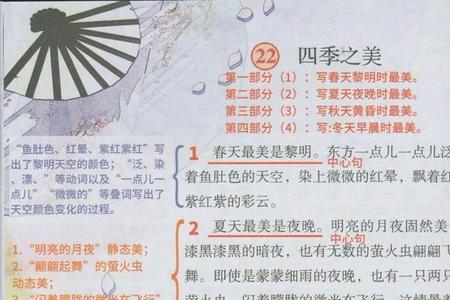 22 四季之美
第一部分（1）：写春天黎明时最美。
第二部分（2）：写夏天夜晚时最美。
第三部分（3）：写秋天黄昏时最美。
第四部分（4）：写:冬天早晨时最美。
“鱼肚色、红晕、紫红紫红”写
出了黎明天空的颜色；“泛、染
、漂、”等动词以及“一点儿一
点儿”“微微的”等叠词写出了
天空颜色变化的过程。
1 春天最美是黎明。东方一点儿一点儿泛
中心句
着鱼肚色的天空，染上微微的红晕，飘着红
紫红紫的彩云。
2 夏天最美是夜晚。明亮的月夜固然美
中心句
漆黑漆黑的暗夜，也有无数的萤火虫翩翩飞
舞。即使是蒙蒙细雨的夜晚，也有一只两只
萤火虫，闪着朦胧的微光在飞行，这情景着
1.“明亮的月夜”静态美；
2.“翩翩起舞”的萤火虫
动态美；
3.“闪着朦胧的微光在飞行”